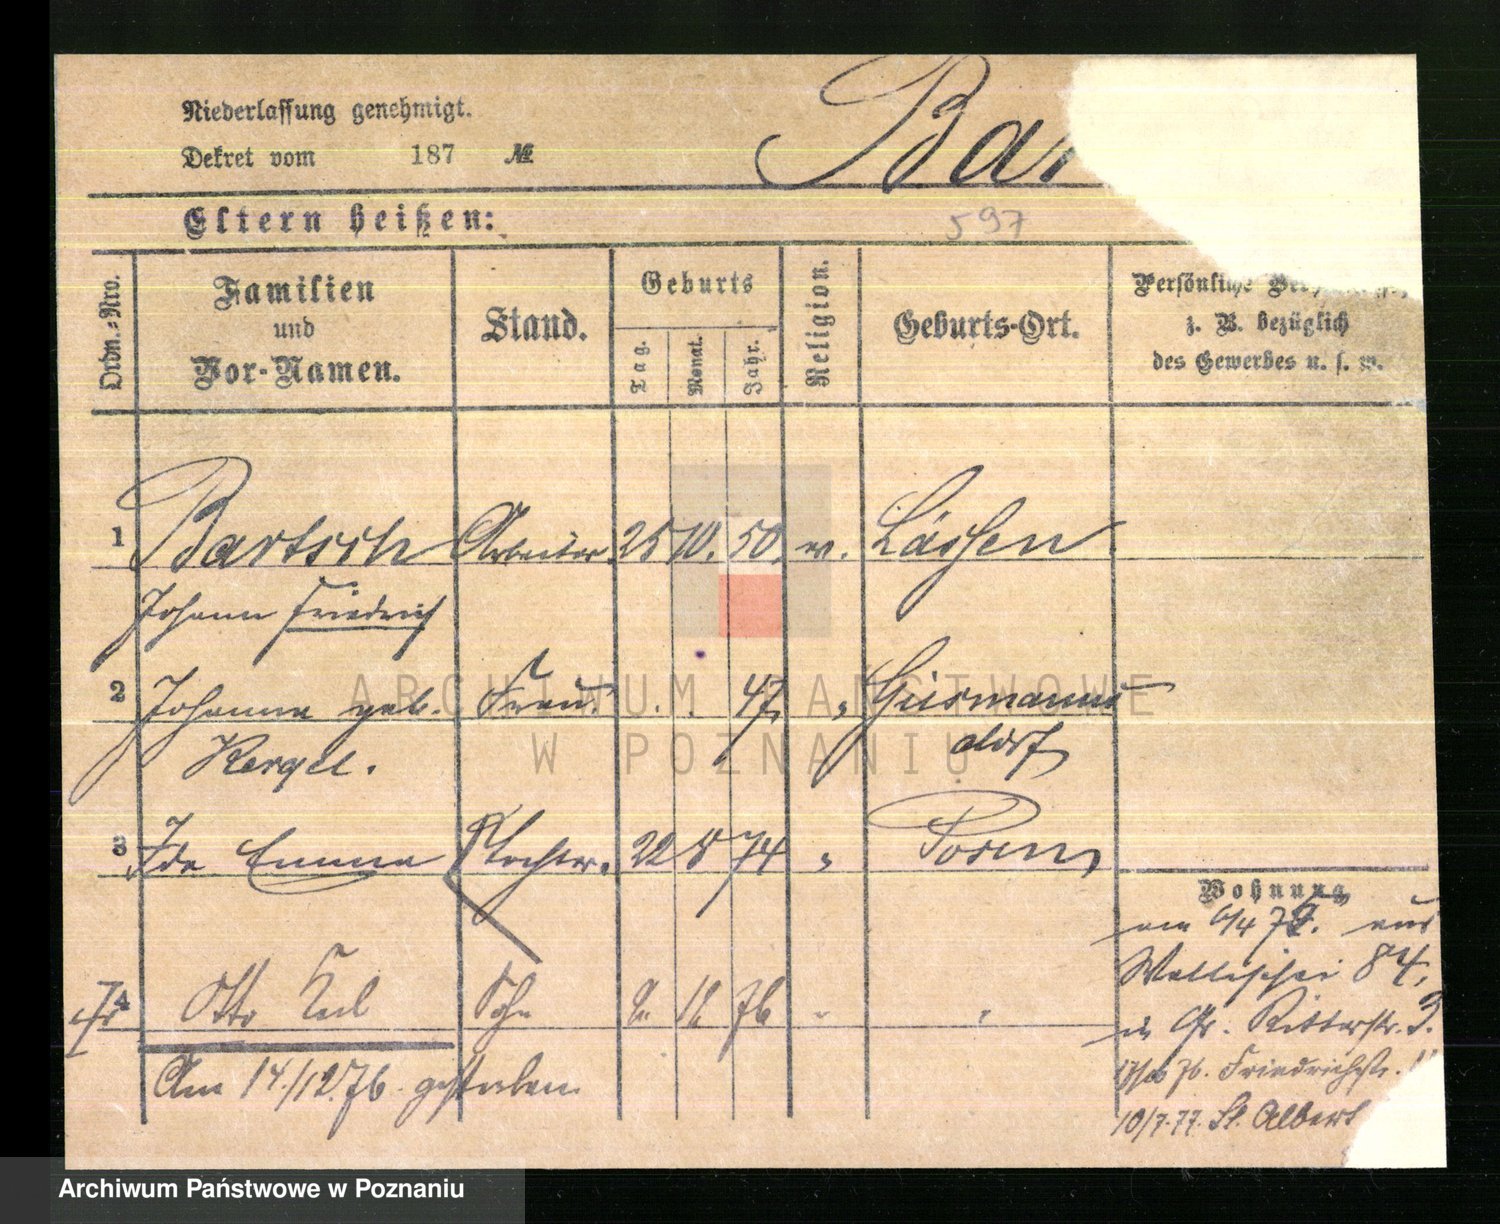 Niederlassung genehmigt.
Dekret vom 187 №
Bar
Eltern heißen:
597
Ordn.=Nro.
Familien
und
Vor-Namen.
Stand.
Geburts
Tag.
Monat.
Jahr.
Religion.
Geburts-Ort.
Persönliche
z. B. bezüglich
des Gewerbes u. s. w.
1 Bartsch Arbeiter 25 10. 50. ev. Lässen
Johann Friedrich
2 Johanna geb. Frau . . 47. "
dorf
Kergel.
3 Ida Emma Tochter. 22 8 74 " Posen
Wohnung
am 6/4 75. aus
Wallischei 84,
4 Otto Sohn 2. 12 76 " "
in Gr. Ritterstr. 3.
Am 14./12.76. gestorben.
76. Friedrichstr.
10/7.77. St. Albert
ARCHIWUM PAŃSTWOWE
W POZNANIU
Archiwum Państwowe w Poznaniu